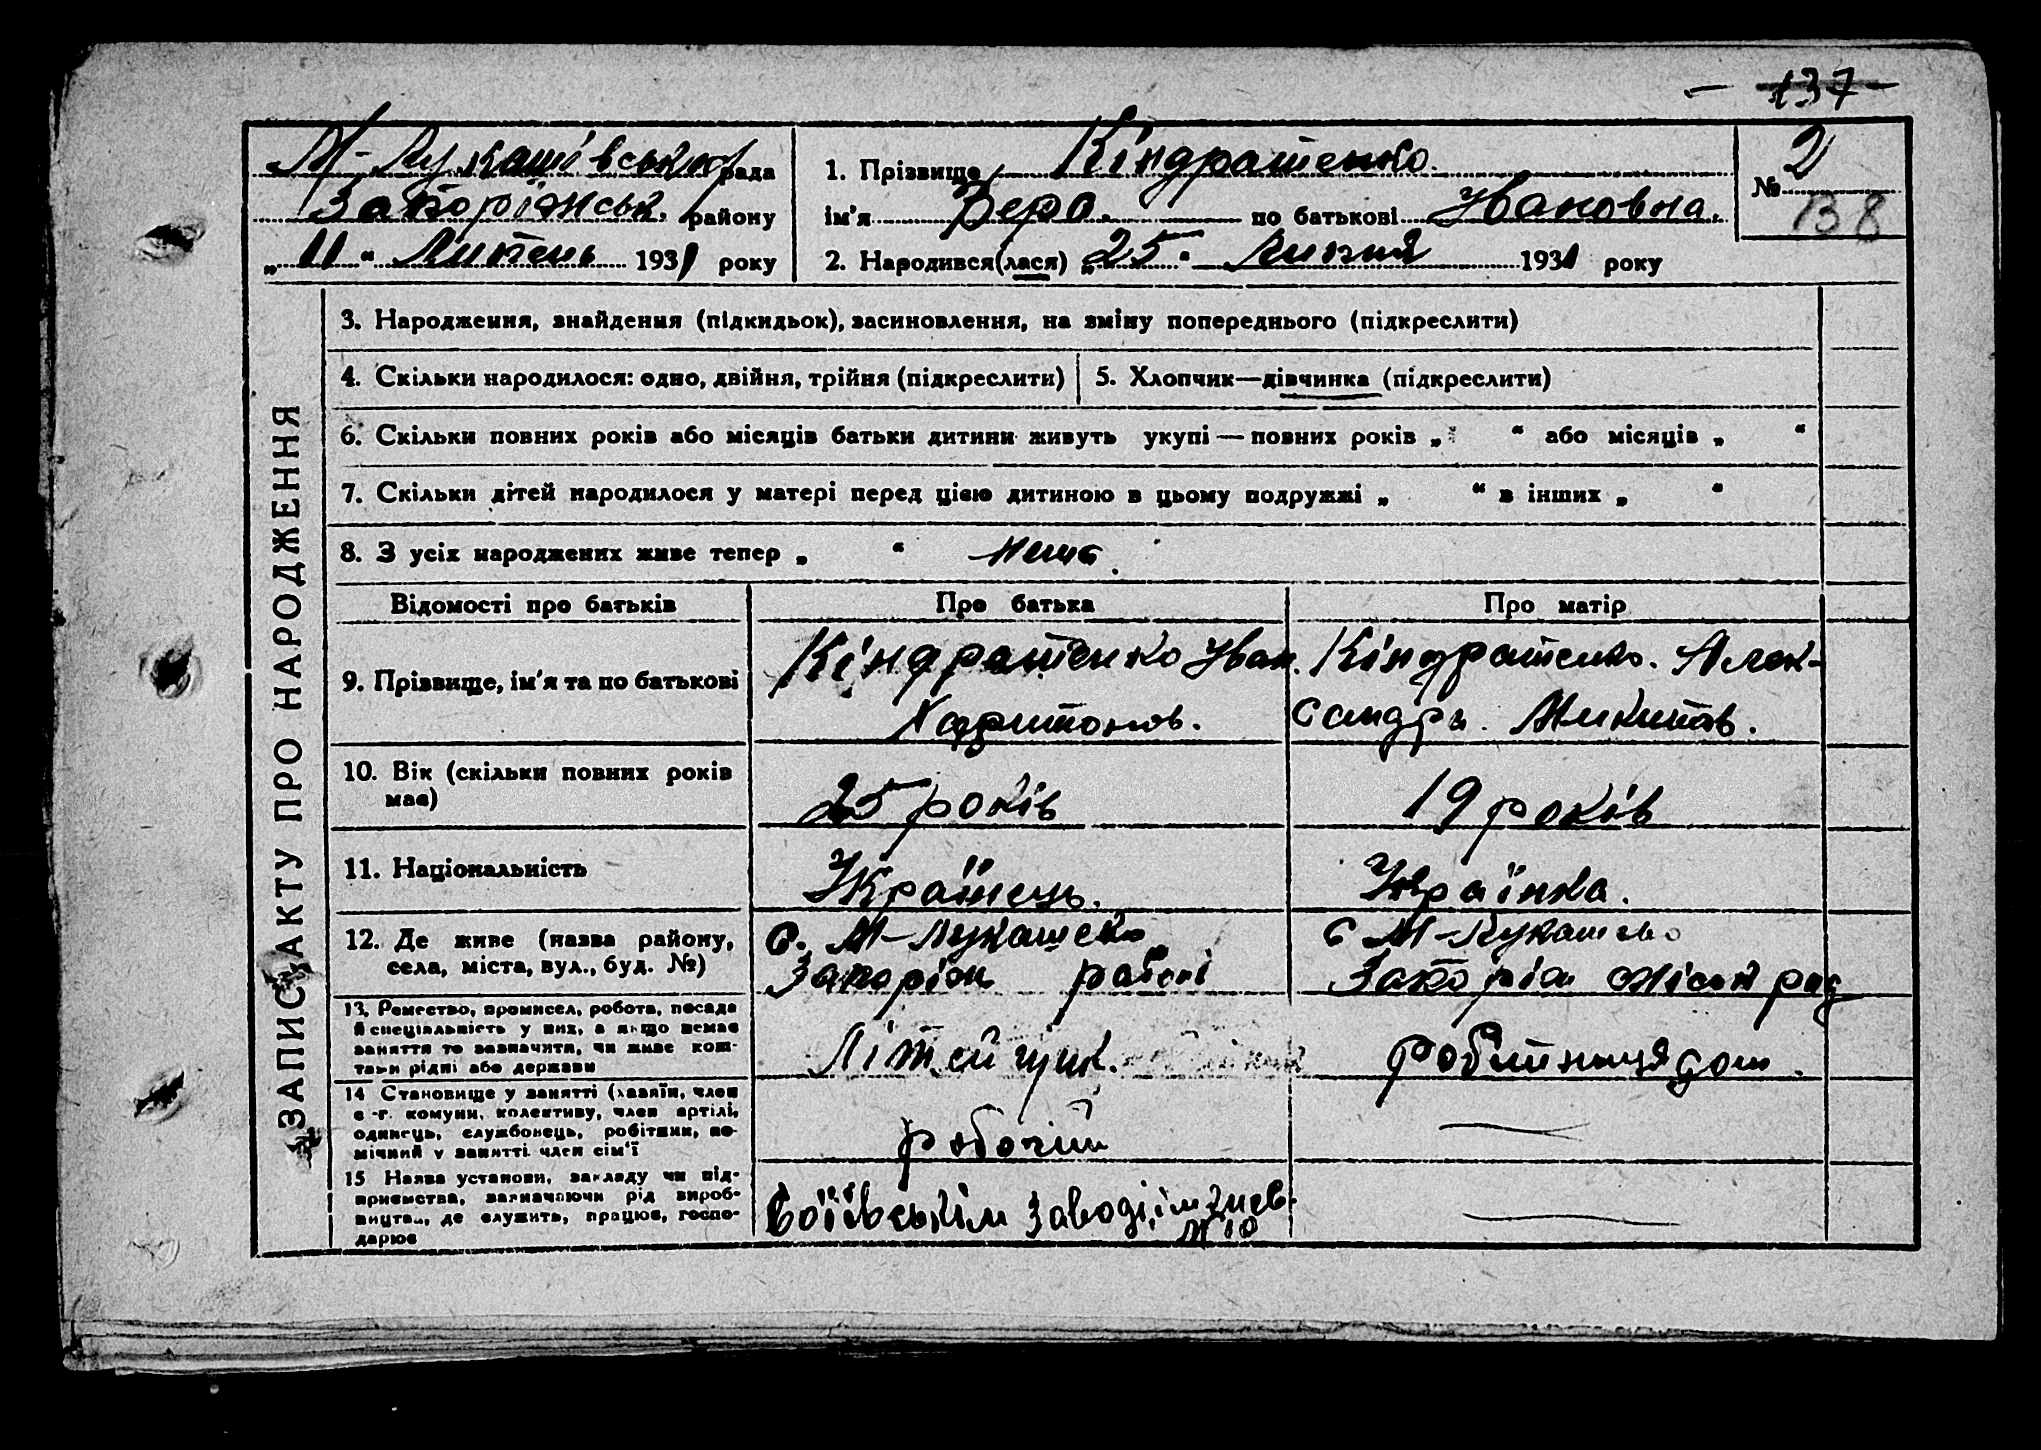 – 137 –
М-Лукашівська рада
Запоріжськ. району
„ 11 “ Липень 1931 року
1. Прізвище Кіндратенко.
ім'я Вера. по батькові Ивановна.
2. Народився(лася) „ 25 “ Липня 1931 року
№ 2
138
ЗАПИС АКТУ ПРО НАРОДЖЕННЯ
3. Народження, знайдення (підкидьок), засиновлення, на зміну попереднього (підкреслити)
4. Скільки народилося: одно, двійня, трійня (підкреслити)
5. Хлопчик—дівчинка (підкреслити)
6. Скільки повних років або місяців батьки дитини живуть укупі — повних років „ “ або місяців „ “
7. Скільки дітей народилося у матері перед цією дитиною в цьому подружжі „ “ в інших „ “
8. З усіх народжених живе тепер „ “
Відомості про батьків
Про батька
Про матір
9. Прізвище, ім'я та по батькові
Кіндратенко Иван.
Харитонов.
Кіндратенко. Алек-
сандра. Микитов.
10. Вік (скільки повних років
має)
25 років
19 років
11. Національність
Українець.
Українка.
12. Де живе (назва району,
села, міста, вул., буд. №)
с. М-Лукашево
Запоріж районі
с М-Лукашево
Запоріж міськ рад
13. Ремество, промисел, робота, посада
й спеціяльність у них, а якщо немає
заняття то зазначити, чи живе кош-
тами рідні або держави
Літейщик.
робітниця дом.
14 Становище у занятті (хазяїн, член
с.-г. комуни, колективу, член артілі,
одинець, службовець, робітник, по-
мічний у занятті член сім'ї
робочий
15 Назва установи, закладу чи під-
приємства, зазначаючи рід вироб-
ництва, де служить, працює, госпо-
дарює
заводі, ім
№ 10